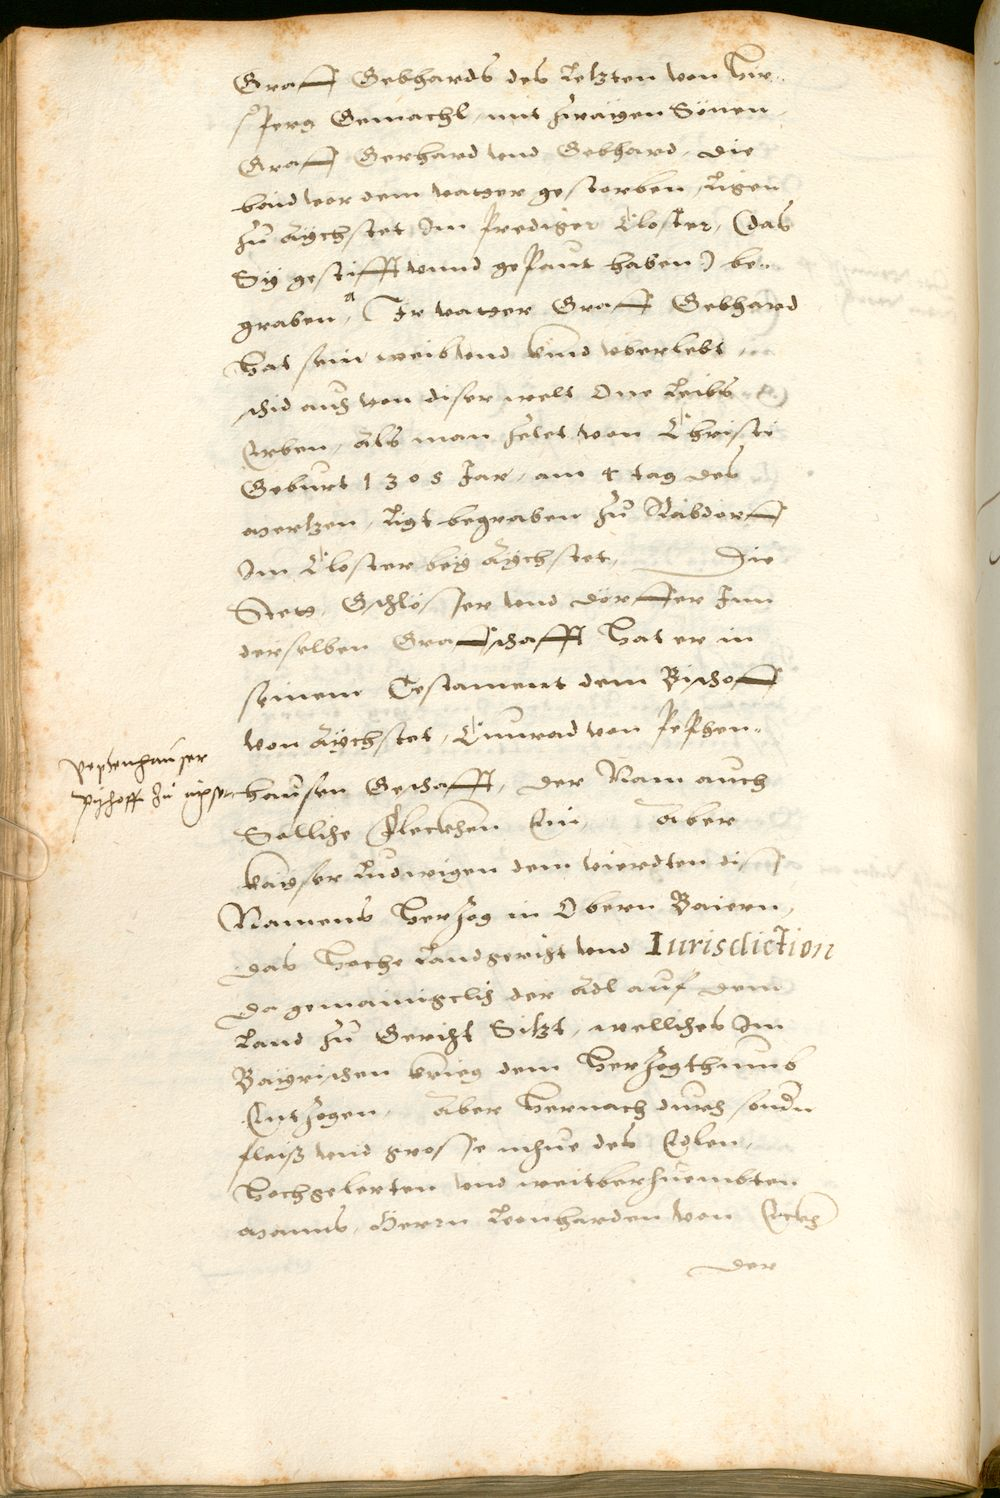 Graff Gebhards des Letzten von Hir-
sperg Gemachl, mit zwayen Sönen,
Graff Gerhard vnd Gebhard, die
baid vor dem vatter gestorben, Ligen
zu Aychstet Im Prediger Closter, (das
Sy gestifft vnnd gepaut haben) be-
graben, Ir vatter Graff Gebhard
Hat sein weib vnd kind vberlebt
schid auch von diser welt One Leibs
Erben, Als man zelet von Christi
Geburt 1305 Jar, am 4 tag des
Mertzen, Ligt begraben zu Rabdorff
Im Closter bey Aychstet, Die
Stett, Gschlösser vnd Dörffer Inn
derselben Graffschafft Hat er in
seinem Testament dem Bischoff
von Aychstet, Cunrad von Pephen-
hausen Geschafft, der Nam auch
Solliche Fleckhen Ein, Aber
kayser Ludwigen dem vierdten diss
Namens Hertzog in Obern Baiern,
das Hoche Landgericht vnd Iurisdiction
Da gemainigclich der Adl auf dem
Land zu Gericht Sitzt, welliches Im
Bayrischen krieg dem Hertzogthumb
Entzogen, Aber Hernach durch sondern
fleiß vnd grosse mhue des Edlen,
Hochgelerten vnd weitberhuembten
Manns, Herrn Leonharden von Eckh
der
Pepfenhauser
Pischoff zu